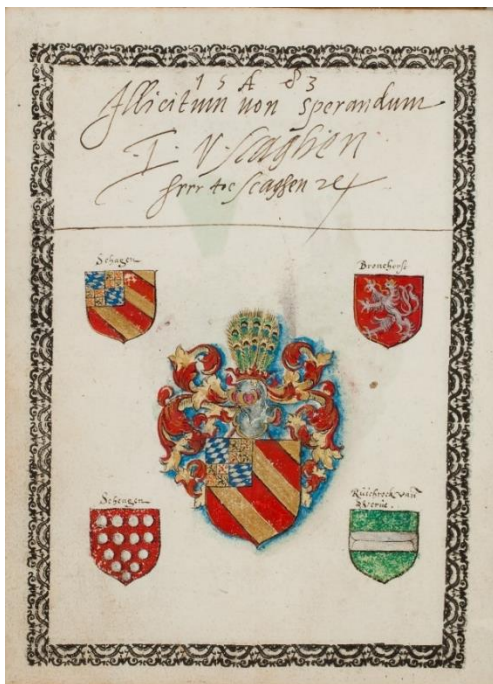 15 A 83
Illicitum non sperandum
J. V. Scaghen
herr toe Scaghen
Schagen
Bronchorst
Schengen
Ruÿchrock van